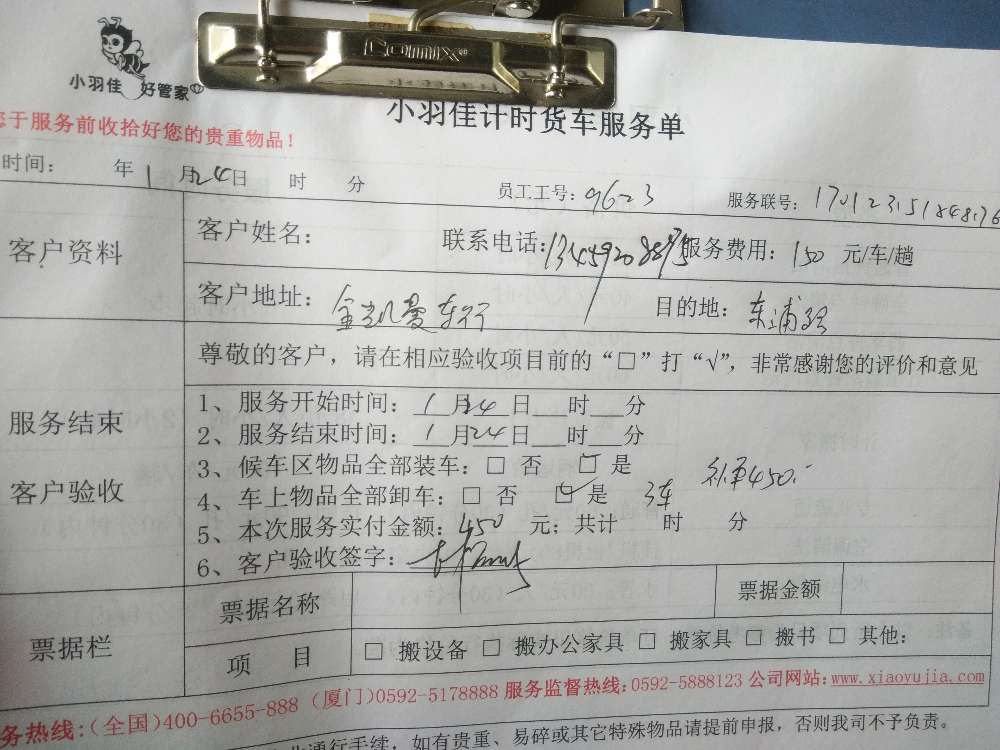 小羽佳 好管家
comix
小羽佳计时货车服务单
您于服务前收拾好您的贵重物品！
时间： 年1月24日 时 分
员工工号：96-23 服务联号：17012351848176
客户资料
客户姓名： 联系电话： 服务费用：150 元/车/趟
客户地址：金凯蔓车行 目的地：东浦路
服务结束
客户验收
尊敬的客户，请在相应验收项目前的“□”打“√”，非常感谢您的评价和意见
1、服务开始时间：1月24日 时 分
2、服务结束时间：1月24日 时 分
3、候车区物品全部装车：□ 否 □ 是
4、车上物品全部卸车：□ 否 ☑ 是 3车 450.
5、本次服务实付金额：450 元；共计 时 分
6、客户验收签字：
票据栏
票据名称 票据金额
项 目 □ 搬设备 □ 搬办公家具 □ 搬家具 □ 搬书 □ 其他：
务热线：（全国）400-6655-888（厦门）0592-5178888 服务监督热线：0592-5888123 公司网站：www.xiaoyujia.com
通行手续，如有贵重、易碎或其它特殊物品请提前申报，否则我司不予负责。